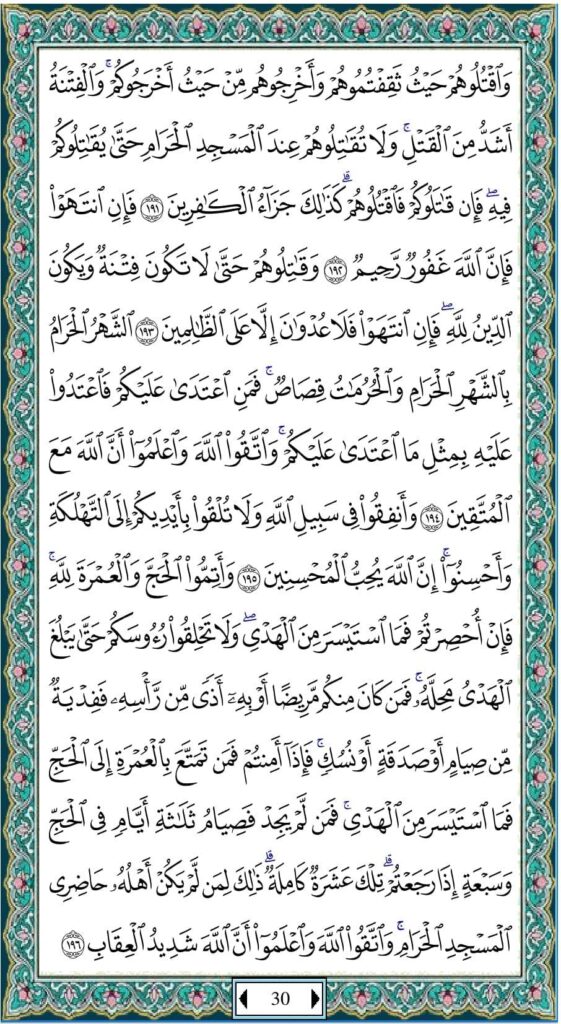 وَٱقۡتُلُوهُمۡ حَيۡثُ ثَقِفۡتُمُوهُمۡ وَأَخۡرِجُوهُم مِّنۡ حَيۡثُ أَخۡرَجُوكُمۡۚ وَٱلۡفِتۡنَةُ
أَشَدُّ مِنَ ٱلۡقَتۡلِۚ وَلَا تُقَٰتِلُوهُمۡ عِندَ ٱلۡمَسۡجِدِ ٱلۡحَرَامِ حَتَّىٰ يُقَٰتِلُوكُمۡ
فِيهِۖ فَإِن قَٰتَلُوكُمۡ فَٱقۡتُلُوهُمۡۗ كَذَٰلِكَ جَزَآءُ ٱلۡكَٰفِرِينَ ١٩١ فَإِنِ ٱنتَهَوۡاْ
فَإِنَّ ٱللَّهَ غَفُورٞ رَّحِيمٞ ١٩٢ وَقَٰتِلُوهُمۡ حَتَّىٰ لَا تَكُونَ فِتۡنَةٞ وَيَكُونَ
ٱلدِّينُ لِلَّهِۖ فَإِنِ ٱنتَهَوۡاْ فَلَا عُدۡوَٰنَ إِلَّا عَلَى ٱلظَّٰلِمِينَ ١٩٣ ٱلشَّهۡرُ ٱلۡحَرَامُ
بِٱلشَّهۡرِ ٱلۡحَرَامِ وَٱلۡحُرُمَٰتُ قِصَاصٞۚ فَمَنِ ٱعۡتَدَىٰ عَلَيۡكُمۡ فَٱعۡتَدُواْ
عَلَيۡهِ بِمِثۡلِ مَا ٱعۡتَدَىٰ عَلَيۡكُمۡۚ وَٱتَّقُواْ ٱللَّهَ وَٱعۡلَمُوٓاْ أَنَّ ٱللَّهَ مَعَ
ٱلۡمُتَّقِينَ ١٩٤ وَأَنفِقُواْ فِي سَبِيلِ ٱللَّهِ وَلَا تُلۡقُواْ بِأَيۡدِيكُمۡ إِلَى ٱلتَّهۡلُكَةِ
وَأَحۡسِنُوٓاْۚ إِنَّ ٱللَّهَ يُحِبُّ ٱلۡمُحۡسِنِينَ ١٩٥ وَأَتِمُّواْ ٱلۡحَجَّ وَٱلۡعُمۡرَةَ لِلَّهِۚ
فَإِنۡ أُحۡصِرۡتُمۡ فَمَا ٱسۡتَيۡسَرَ مِنَ ٱلۡهَدۡيِۖ وَلَا تَحۡلِقُواْ رُءُوسَكُمۡ حَتَّىٰ يَبۡلُغَ
ٱلۡهَدۡيُ مَحِلَّهُۥۚ فَمَن كَانَ مِنكُم مَّرِيضًا أَوۡ بِهِۦٓ أَذٗى مِّن رَّأۡسِهِۦ فَفِدۡيَةٞ
مِّن صِيَامٍ أَوۡ صَدَقَةٍ أَوۡ نُسُكٖۚ فَإِذَآ أَمِنتُمۡ فَمَن تَمَتَّعَ بِٱلۡعُمۡرَةِ إِلَى ٱلۡحَجِّ
فَمَا ٱسۡتَيۡسَرَ مِنَ ٱلۡهَدۡيِۚ فَمَن لَّمۡ يَجِدۡ فَصِيَامُ ثَلَٰثَةِ أَيَّامٖ فِي ٱلۡحَجِّ
وَسَبۡعَةٍ إِذَا رَجَعۡتُمۡۗ تِلۡكَ عَشَرَةٞ كَامِلَةٞۗ ذَٰلِكَ لِمَن لَّمۡ يَكُنۡ أَهۡلُهُۥ حَاضِرِي
ٱلۡمَسۡجِدِ ٱلۡحَرَامِۚ وَٱتَّقُواْ ٱللَّهَ وَٱعۡلَمُوٓاْ أَنَّ ٱللَّهَ شَدِيدُ ٱلۡعِقَابِ ١٩٦
30